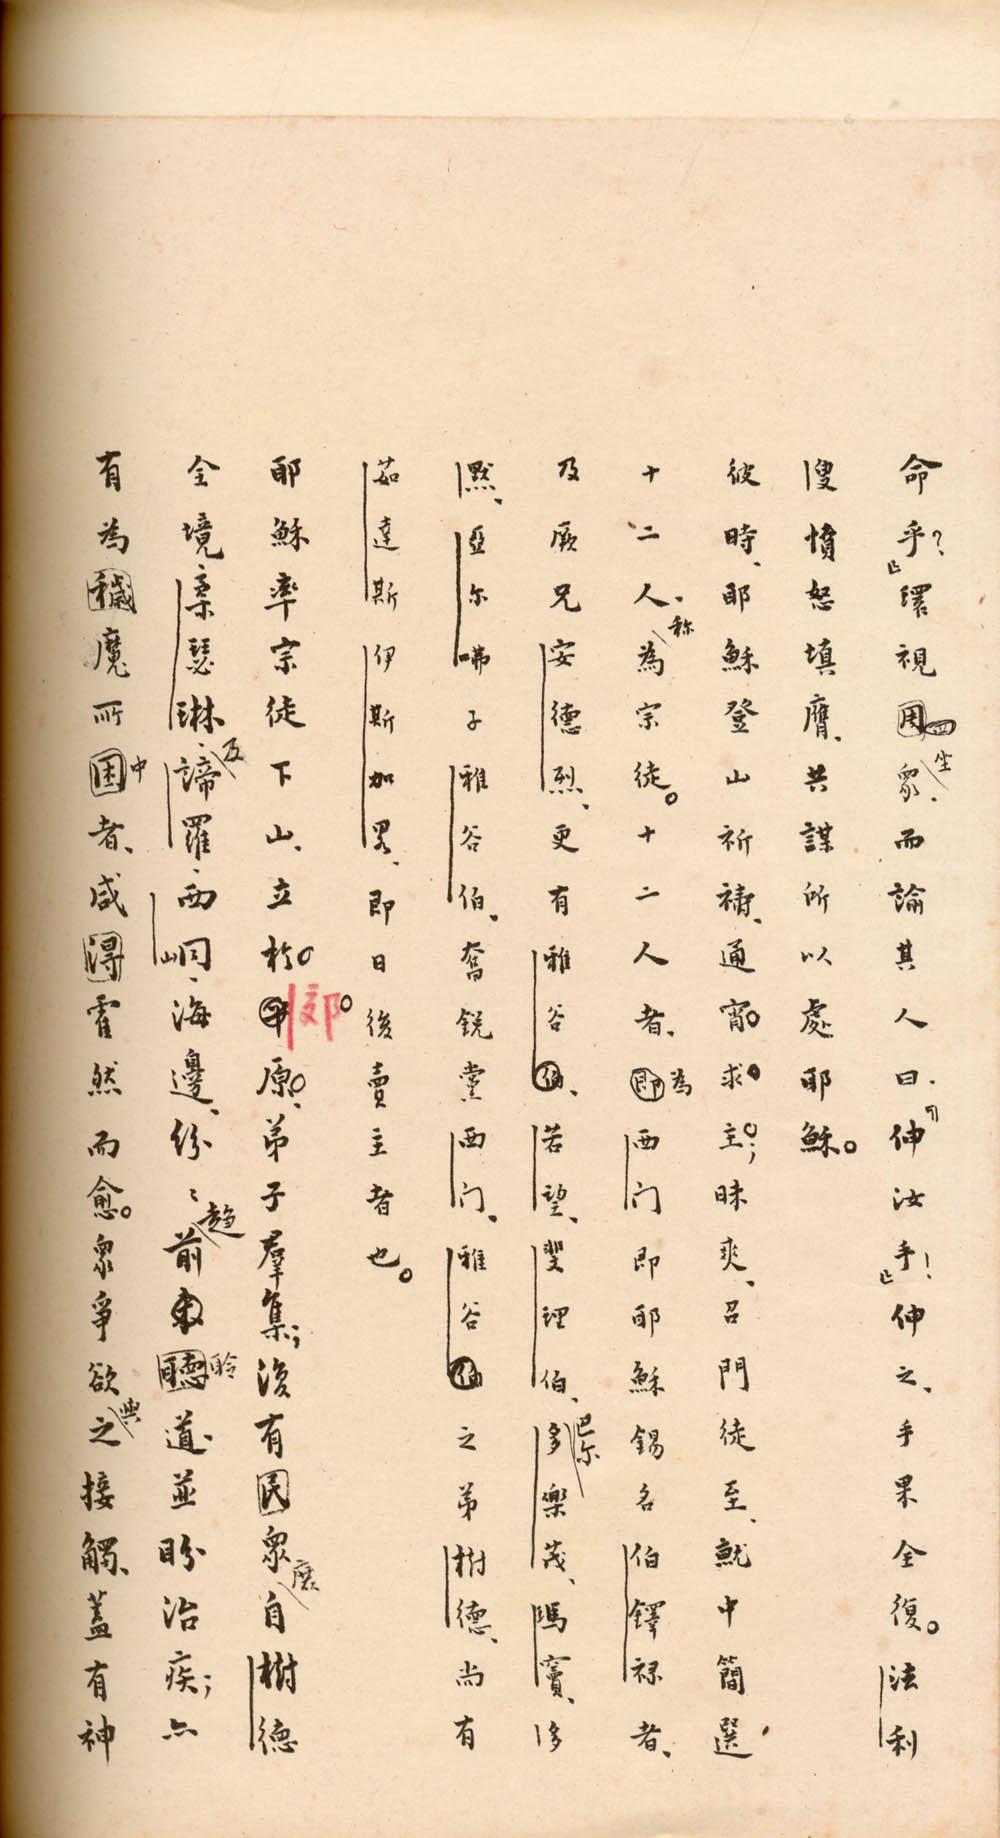 命乎？」環視周四坐眾、而論其人曰、「伸汝手！」伸之、手果全復。法利
叟憤怒填膺、共謀所以處耶穌。
彼時、耶穌登山祈禱、通宵求主；昧爽、召門徒至、就中簡選
十二人、称為宗徒。十二人者、即為西门即耶穌錫名伯鐸祿者、
及厥兄安德烈、更有雅谷伯、若望、斐理伯、巴尔多樂茂、瑪竇、多
默、亞尔咈子雅谷伯、奮銳黨西门、雅谷伯之弟樹德、尚有
茹達斯伊斯加畧、即日後賣主者也。
耶穌率宗徒下山、立於平郊原、弟子羣集；復有民眾麕自樹德
全境、柔瑟琳、及諦羅、西峒、海邊、紛〻趨前來聽聆道、並盼治疾；亦
有為穢魔所困中者、咸得霍然而愈。眾爭欲與之接觸、蓋有神